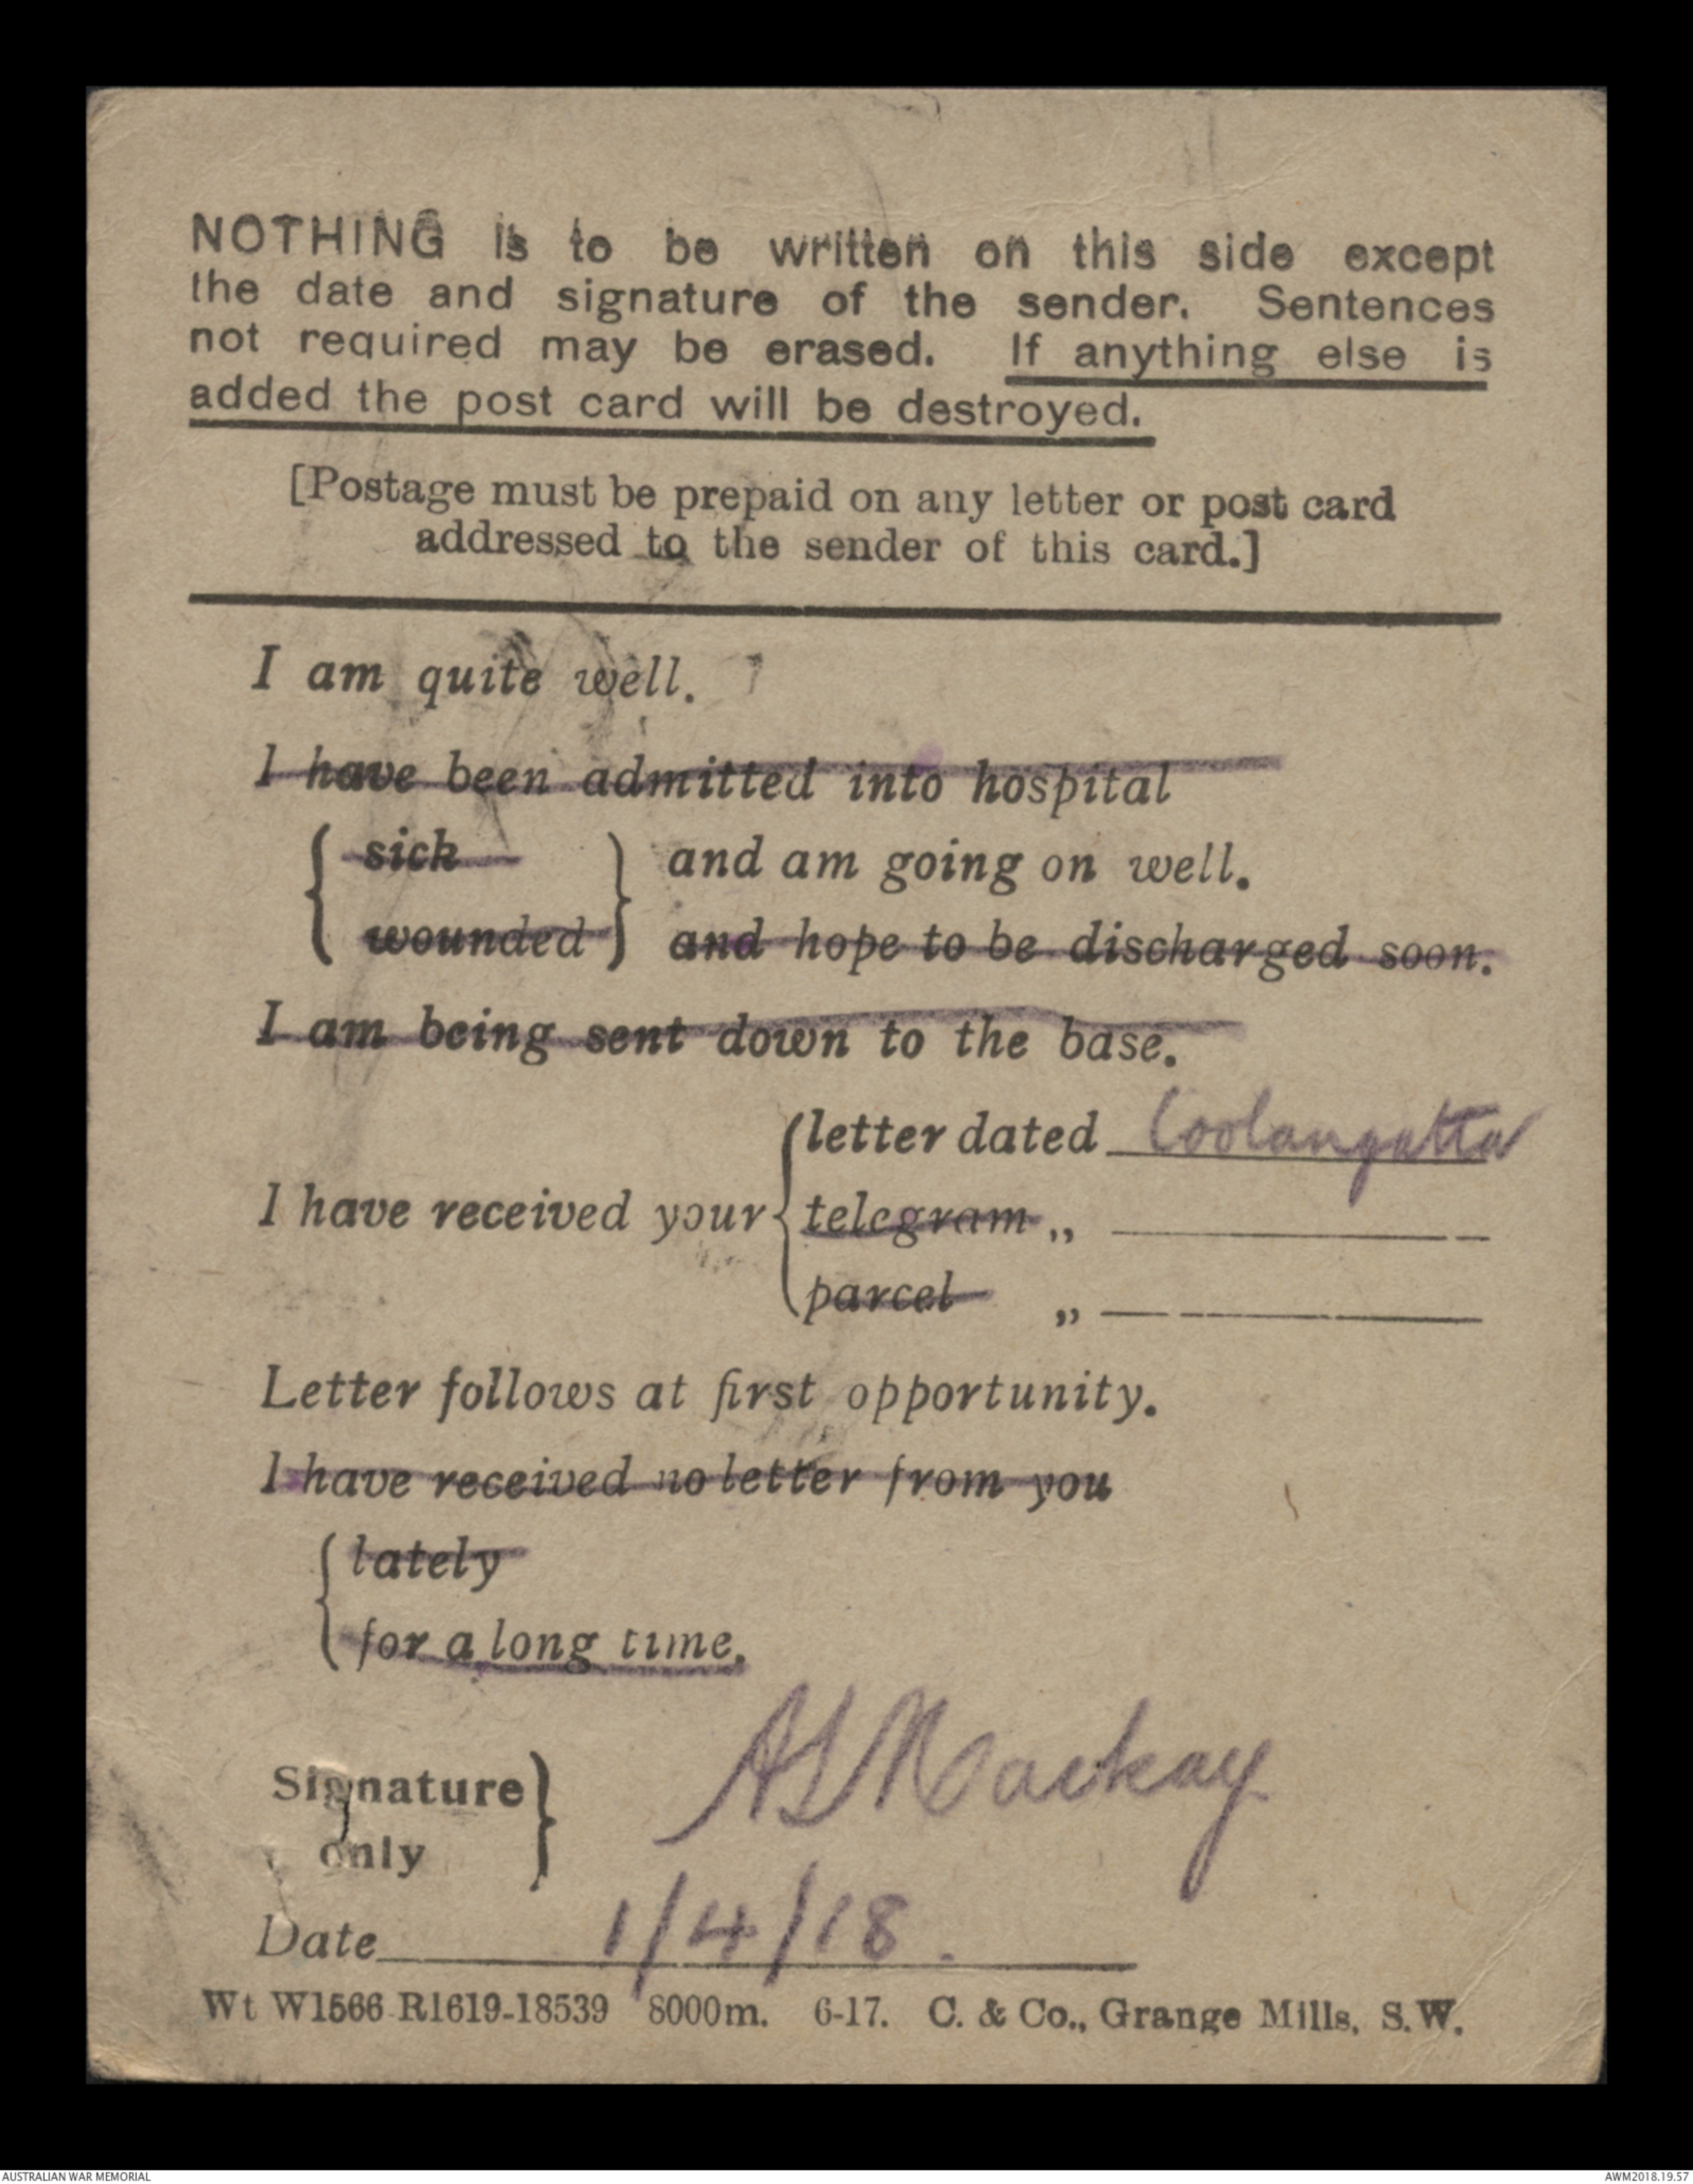 NOTHING is to be written on this side except
the date and signature of the sender. Sentences
not required may be erased. If anything else is
added the post card will be destroyed.
[Postage must be prepaid on any letter or post card
addressed to the sender of this card.]
I am quite well.
I have been admitted into hospital
sick and am going on well.
wounded and hope to be discharged soon.
I am being sent down to the base.
letter dated Coolangatta
I have received your telegram „
parcel „
Letter follows at first opportunity.
I have received no letter from you
lately
for a long time.
Signature
only
A L Mackay
Date 1/4/18.
Wt W1566 R1619-18539 8000m. 6-17. C. & Co., Grange Mills, S.W.
AUSTRALIAN WAR MEMORIAL
AWM2018.19.57